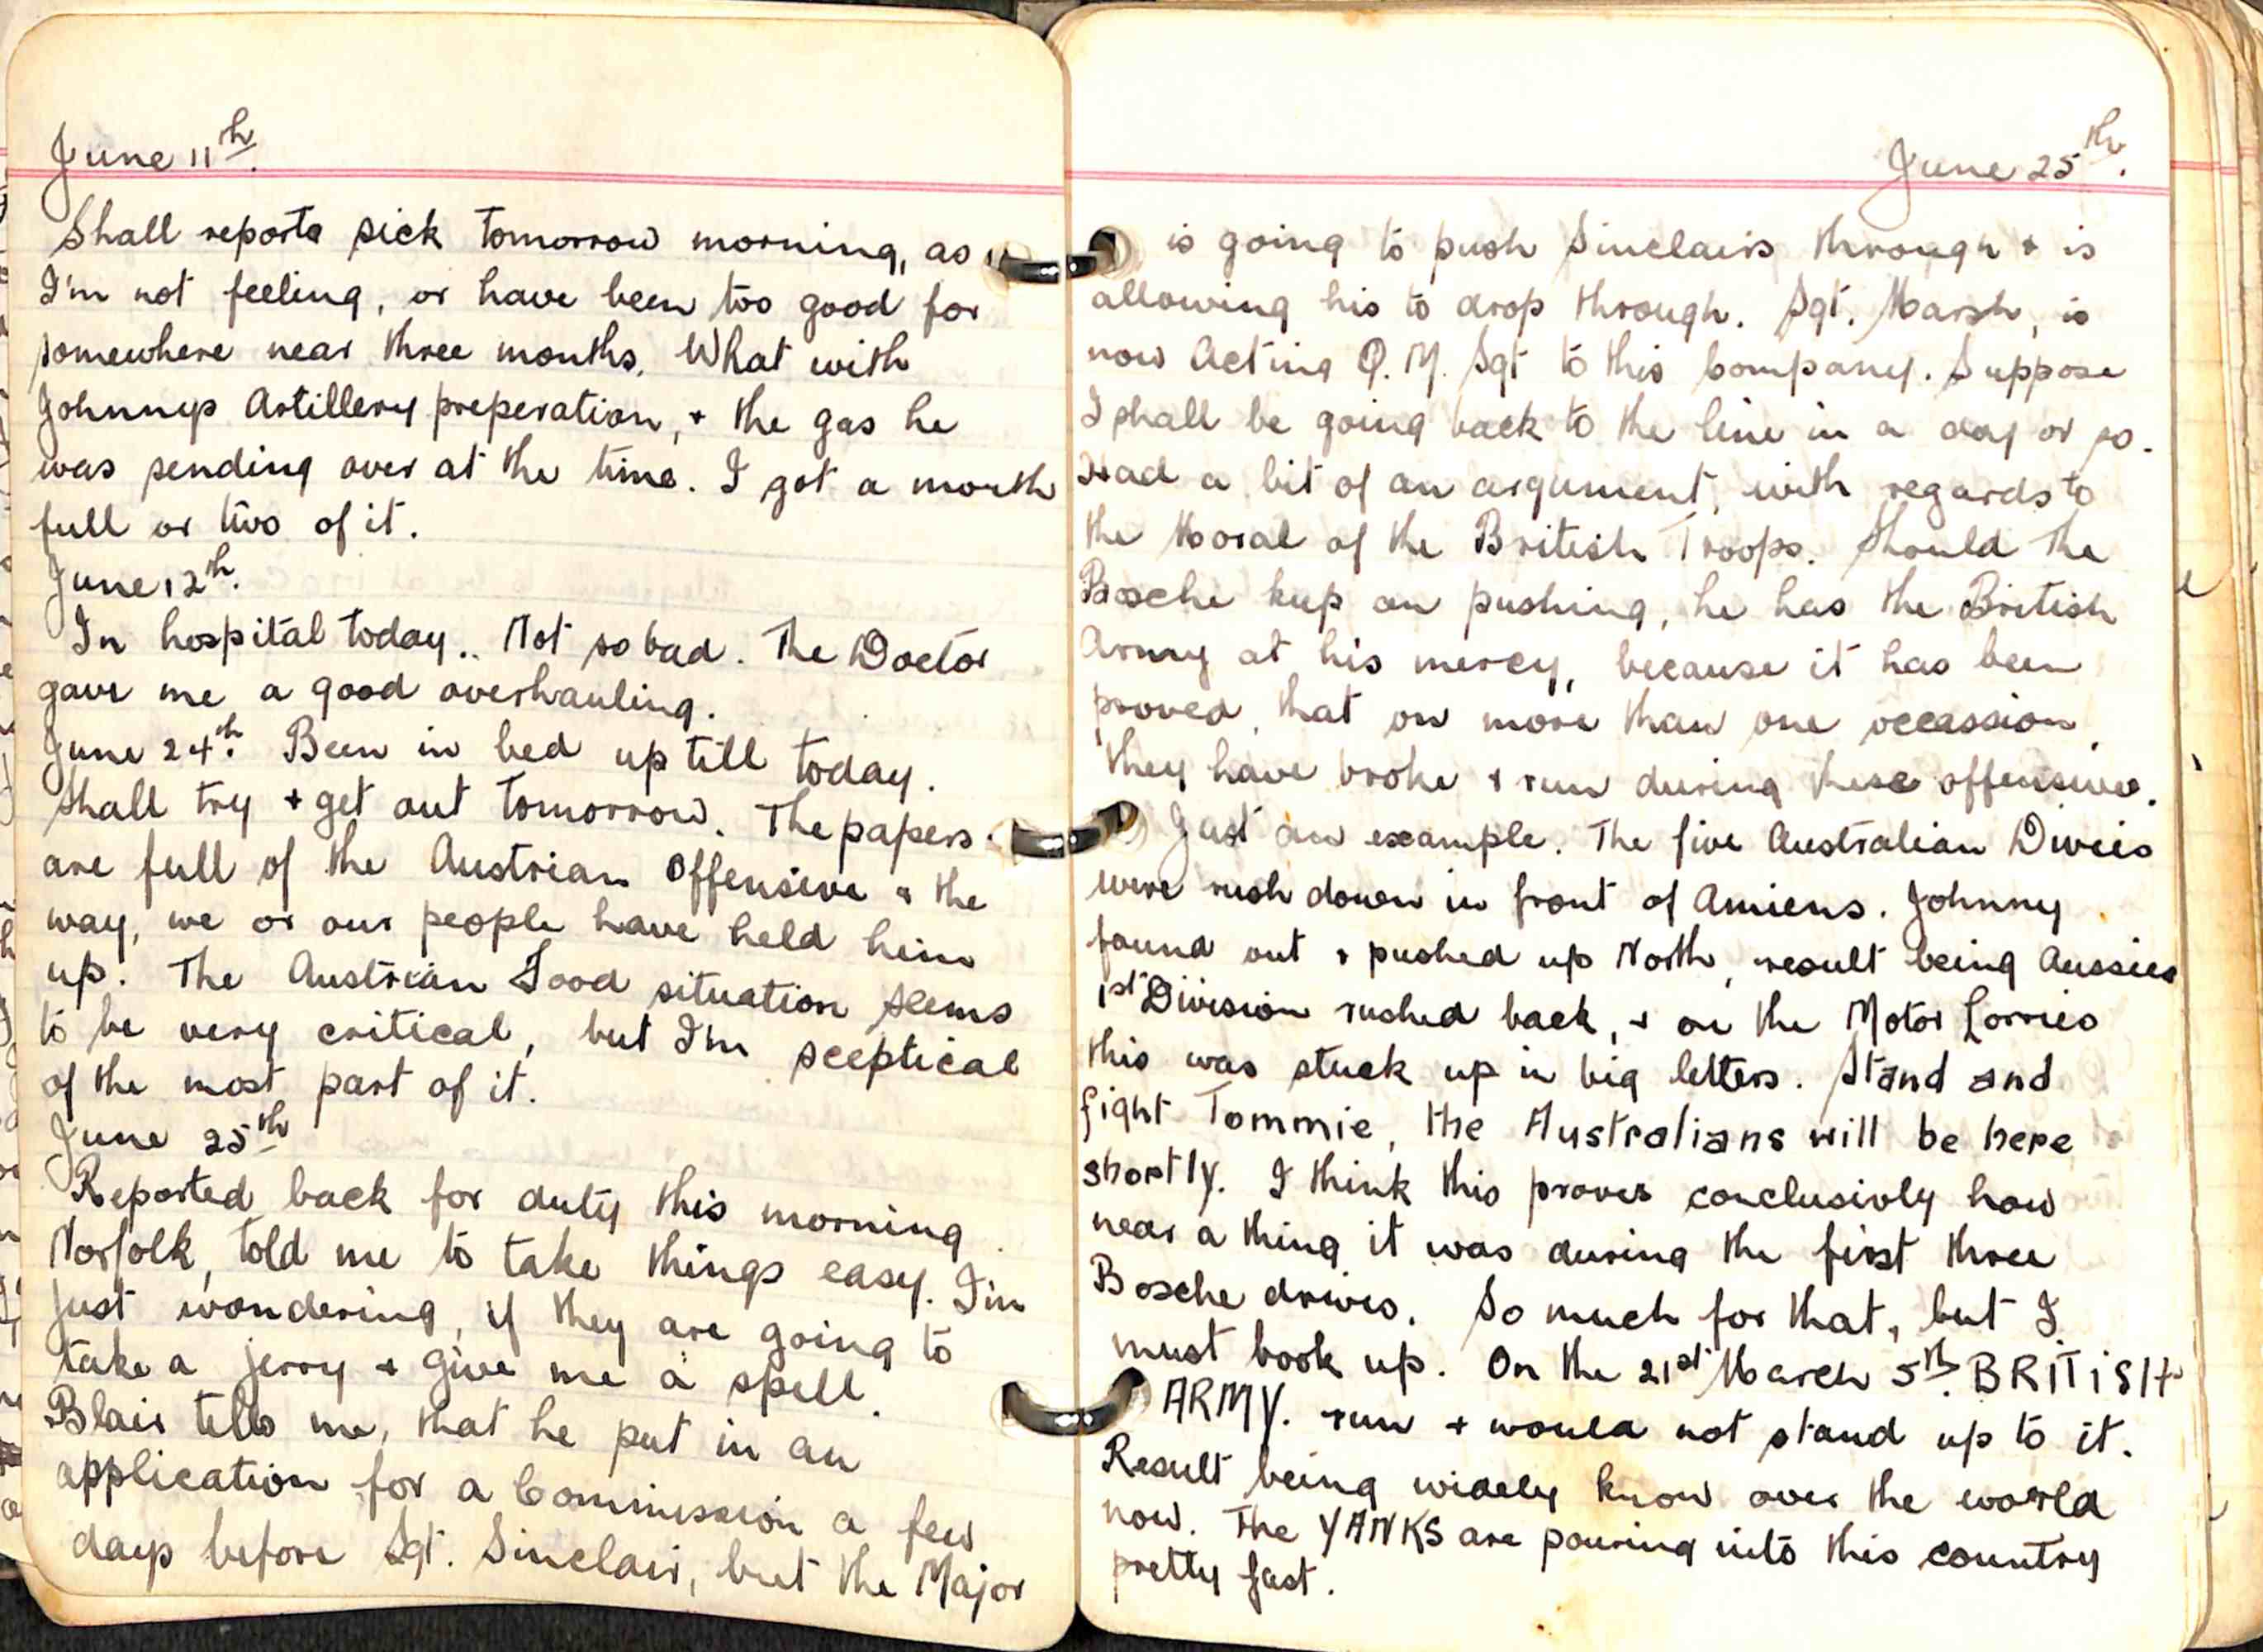 June 11th.
Shall reporta sick tomorrow morning, as
I'm not feeling, or have been too good for
somewhere near three months. What with
Johnnys Artillery preperation, + the gas he
was sending over at the time. I got a mouth
full or two of it.
June 12th.
In hospital today.. Not so bad. The Doctor
gave me a good overhauling.
June 24th. Been in bed up till today.
Shall try + get out tomorrow. The papers
are full of the Austrian Offensive & the
way, we or our people have held him
up. The Austrian Food situation seems
to be very critical, but I'm sceptical
of the most part of it.
June 25th
Reported back for duty this morning.
Norfolk, told me to take things easy. I'm
just wondering, if they are going to
take a jerry + give me a spell.
Blair tells me, that he put in an
application for a Commission a few
days before Sgt. Sinclair, but the Major
June 25th.
is going to push Sinclairs through + is
allowing his to drop through. Sgt. Marsh, is
now Acting Q.M. Sgt to this Company. Suppose
I shall be going back to the line in a day or so.
Had a bit of an argument, with regards to
the Moral of the British Troops. Should the
Bosche kup on pushing, he has the British
Army at his mercy, because it has been
proved, that on more than one occassion,
they have broke & run during these offensives.
Just an example. The five Australian Divies
were rush down in front of Amiens. Johnny
found out & pushed up North, result being Aussies
1st Division rushed back, + on the Motor Lorries
this was stuck up in big letters. Stand and
fight Tommie, the Australians will be here
shortly. I think this proves conclusivly how
near a thing it was during the first three
Bosche drives. So much for that, but I
must book up. On the 21st March 5th. BRITISH
ARMY. run + would not stand up to it.
Result being widely know over the world
now. The YANKS are pouring into this country
pretty fast.